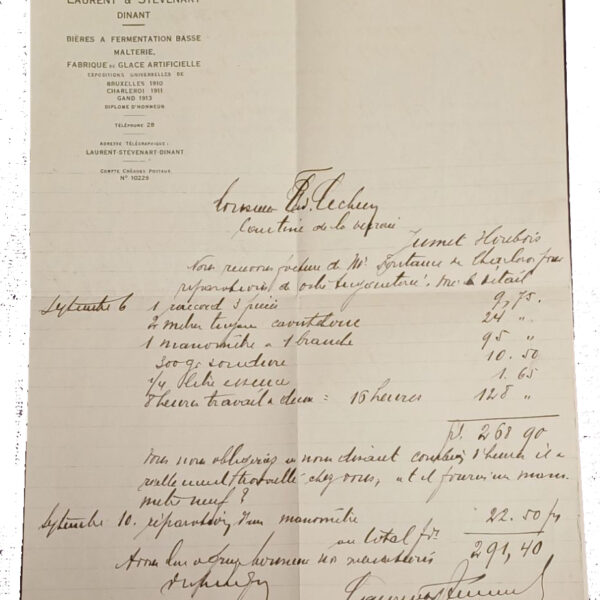 LAURENT & STEVENART
DINANT
BIÈRES A FERMENTATION BASSE
MALTERIE,
FABRIQUE DE GLACE ARTIFICIELLE
EXPOSITIONS UNIVERSELLES DE
BRUXELLES 1910
CHARLEROI 1911
GAND 1913
DIPLOME D'HONNEUR
TÉLÉPHONE 28
ADRESSE TÉLÉGRAPHIQUE:
LAURENT-STÉVENART-DINANT
COMPTE CHÈQUES POSTAUX
N° 10229
Monsieur
Cantine de la verrerie
Jumet Houbois
Nous recevons facture de Mr Fontaine de Charleroi pour
réparations de votre le détail
Septembre 6 1 raccord 3 pièces 9,75.
2 mètres tuyau caoutchouc 24 "
1 manomètre a 1 branche 95 "
300 gr soudure 10.50
1/4 litre essence 1.65
8 heures travail a deux = 16 heures 128 "
268 90
Vous nous obligeriez en nous disant combien d'heures il a
réellement travaillé chez vous, et il fourni un mano
mètre neuf ?
Septembre 10. réparation d'un manomètre 22.50 frs
au total frs. 291,40
nos salutations